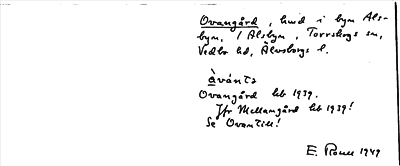 Ovangård, hmd i byn Als-
byn, / Alsbyn, Torrskogs sn,
Vedbo hd, Älvsborgs l.
àvánts
Ovangård hb 1939.
Jfr Mellangård hb 1939!
Se Ovantill!
E. 1949